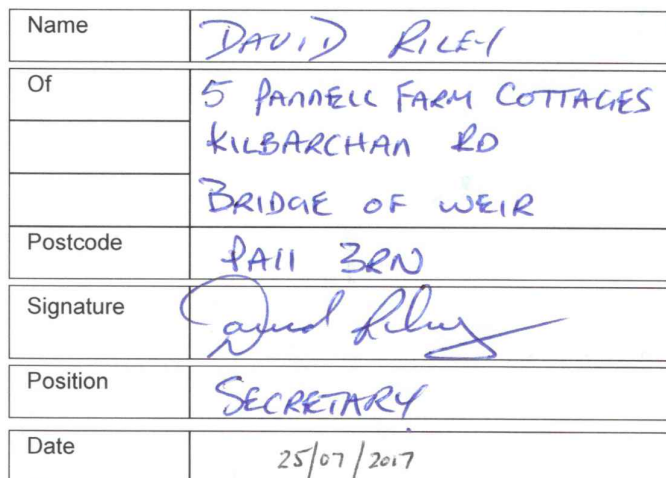 Name DAVID RILEY
Of 5 PANNELL FARM COTTAGES
KILBARCHAN RD
BRIDGE OF WEIR
Postcode PA11 3RN
Signature David Riley
Position SECRETARY
Date 25/07/2017